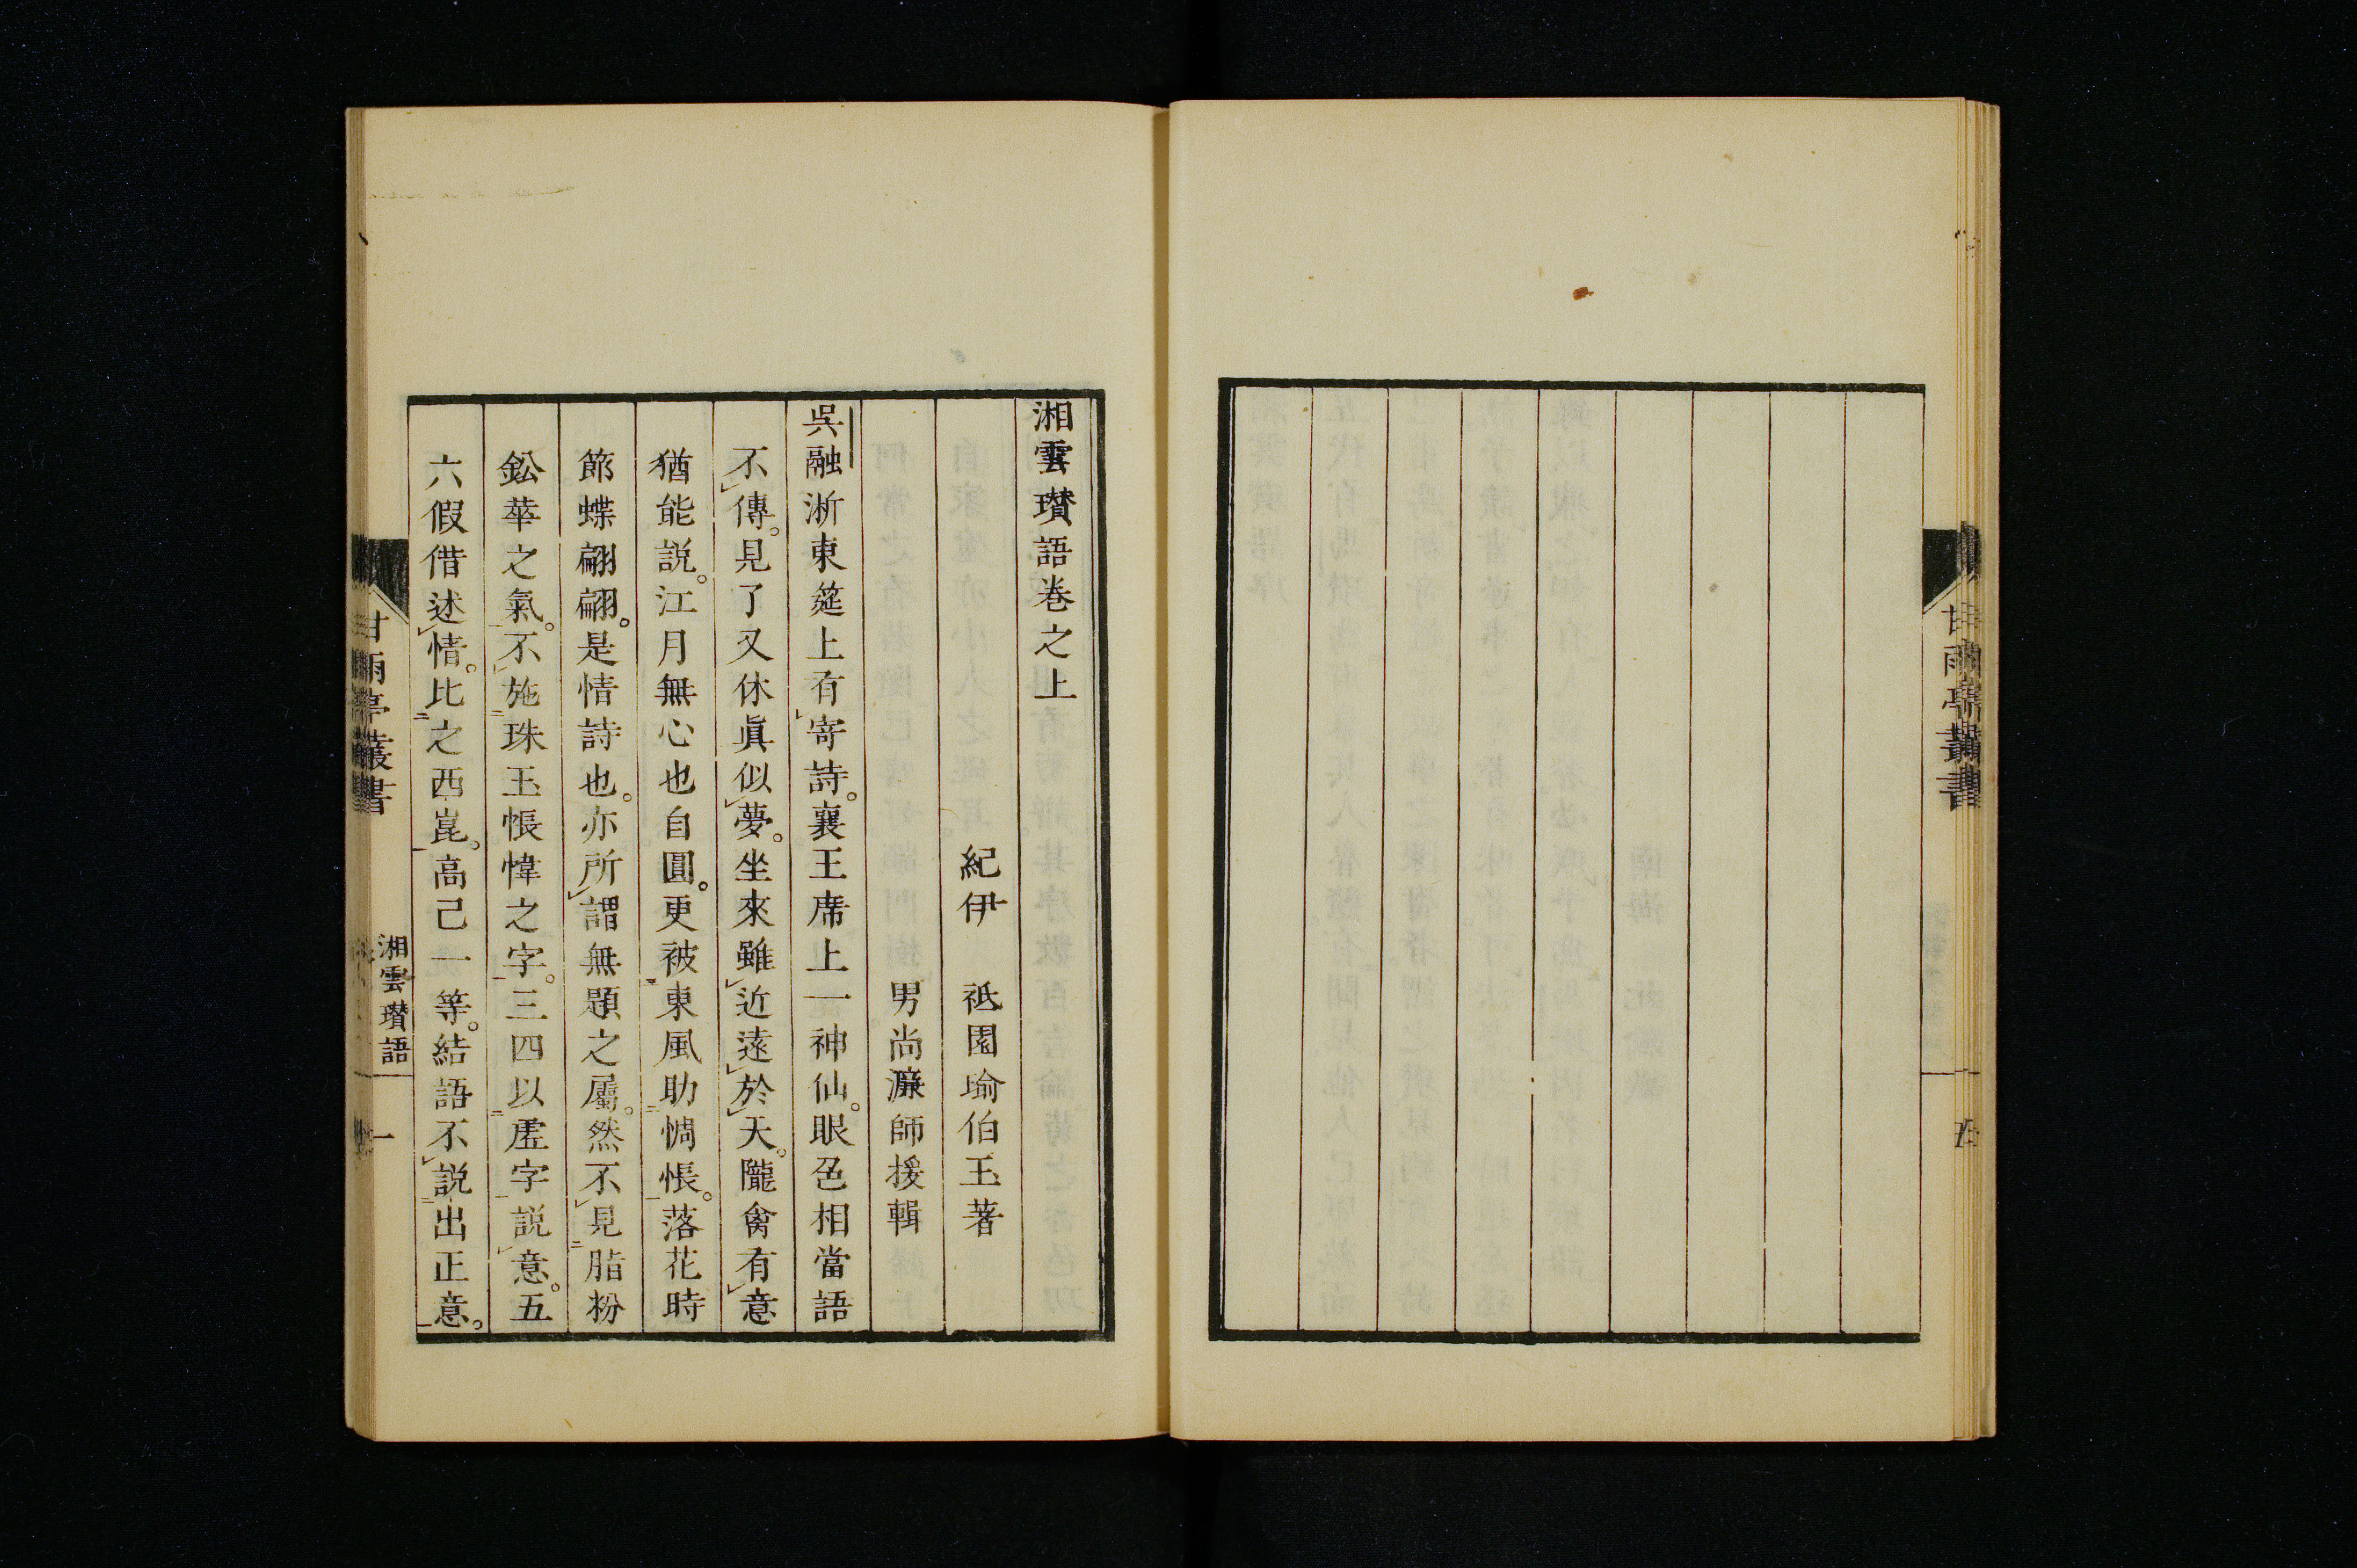 甘雨亭叢書
五
湘雲瓚語卷之上
紀伊 祗園瑜伯玉著
男尚濂師援輯
吳融浙東筵上有寄詩。襄王席上一神仙。眼色相當語
不傳。見了又休眞似夢。坐來雖近遠於天。隴禽有意
猶能説。江月無心也自圓。更被東風助惆悵。落花時
節蝶翩翩。是情詩也。亦所謂無題之屬。然不見脂粉
鈆華之氣。不施珠玉帳幃之字。三四以虛字説意。五
六假借述情。比之西崑。高己一等。結語不説出正意。
甘雨亭叢書
湘雲瓚語
一